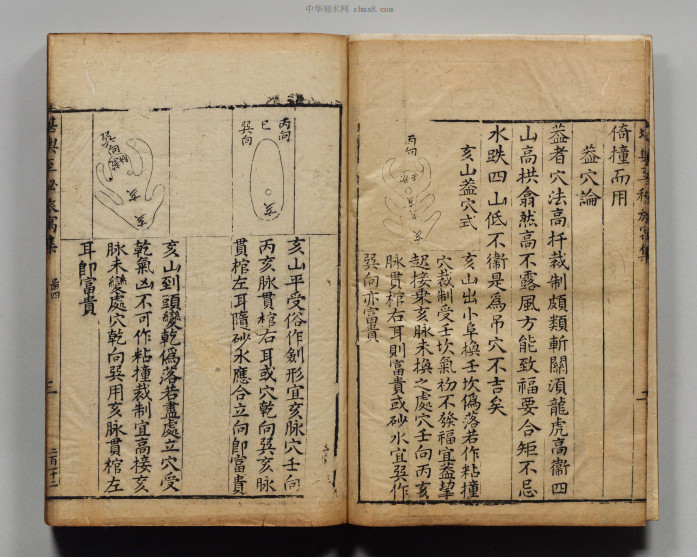 中华秘术网 zhms8.com
倚撞而用
葢穴論
葢者穴法高扦裁制頗類斬關湏龍虎高衞四
山高拱翕然高不露風方能致福要合矩不忌
水跌四山低不衞是為吊穴不吉矣
亥山葢穴式
丙向
亥山出小阜換壬坎偽落若作粘撞
穴裁制受壬坎氣礽不發福宜葢挈
起接乗亥脉未換之處穴壬向丙亥
脉貫棺右耳則富貴或砂水宜巽作
巽向亦富貴
丙向
巳
巽向
亥
亥山平受俗作劍形宜亥脉穴壬向
丙亥脉貫棺右耳或穴乾向巽亥脉
貫棺左耳隨砂水應合立向卽富貴
巽向
亥
亥
亥山到頭變乾偽落若盡處立穴受
乾氣凶不可作粘撞裁制宜高接亥
脉未變處穴乾向巽用亥脉貫棺左
耳卽富貴
三